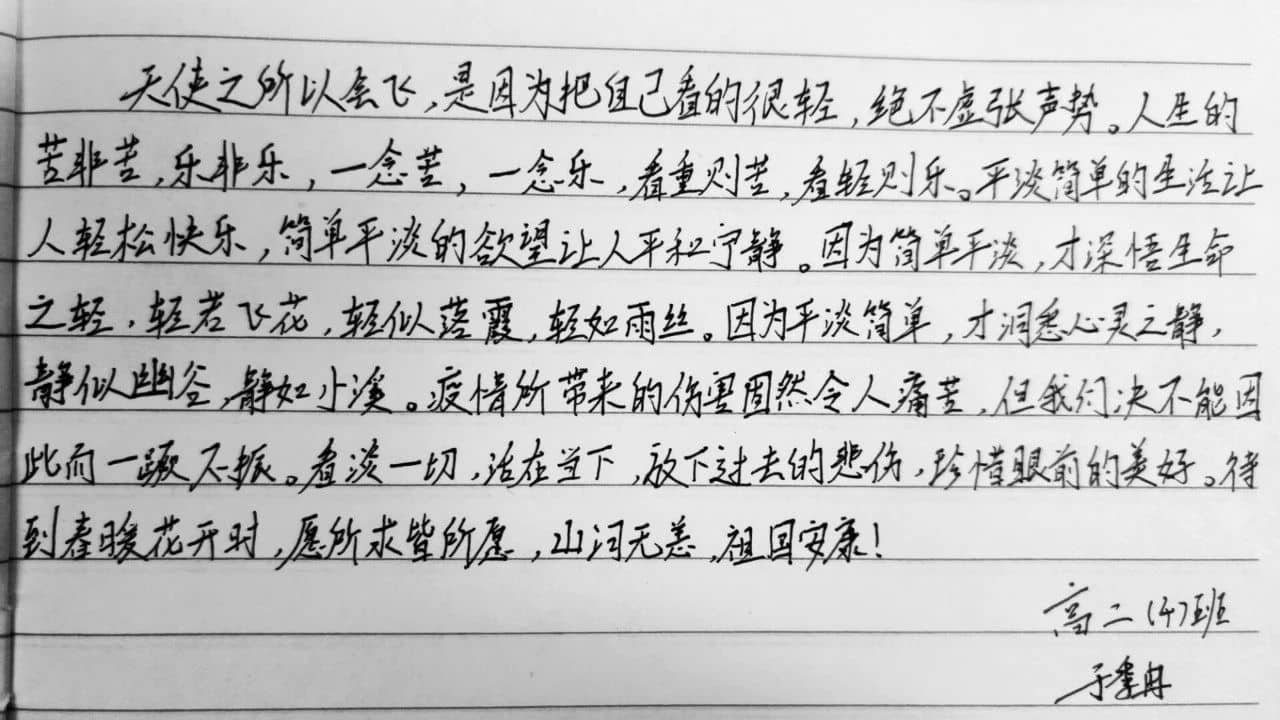 天使之所以会飞,是因为把自己看的很轻,绝不虚张声势。人生的
苦非苦,乐非乐,一念苦,一念乐,看重则苦,看轻则乐。平淡简单的生活让
人轻松快乐,简单平淡的欲望让人平和宁静。因为简单平淡,才深悟生命
之轻,轻若飞花,轻似落霞,轻如雨丝。因为平淡简单,才洞悉心灵之静,
静似幽谷,静如小溪。疫情所带来的伤害固然令人痛苦,但我们决不能因
此而一蹶不振。看淡一切,活在当下,放下过去的悲伤,珍惜眼前的美好。待
到春暖花开时,愿所求皆所愿,山河无恙,祖国安康!
高二(4)班